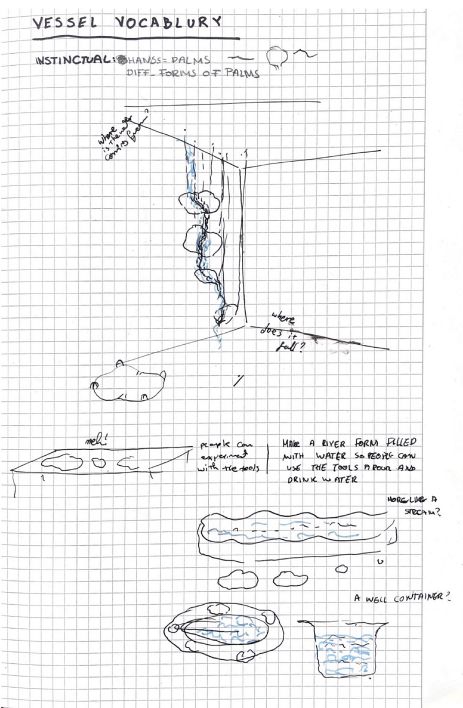 VESSEL VOCABLURY
INSTINCTUAL: HANSS = PALMS
DIFF_ FORMS OF PALMS
where
is the water
coming from?
where
does it
fall?
meh!
people can
experiment
with the tools
MAKE A RIVER FORM FILLED
WITH WATER SO PEOPLE CAN
USE THE TOOLS POUR AND
DRINK WATER
MORE LIKE A
STREAM?
A WELL CONTAINER?